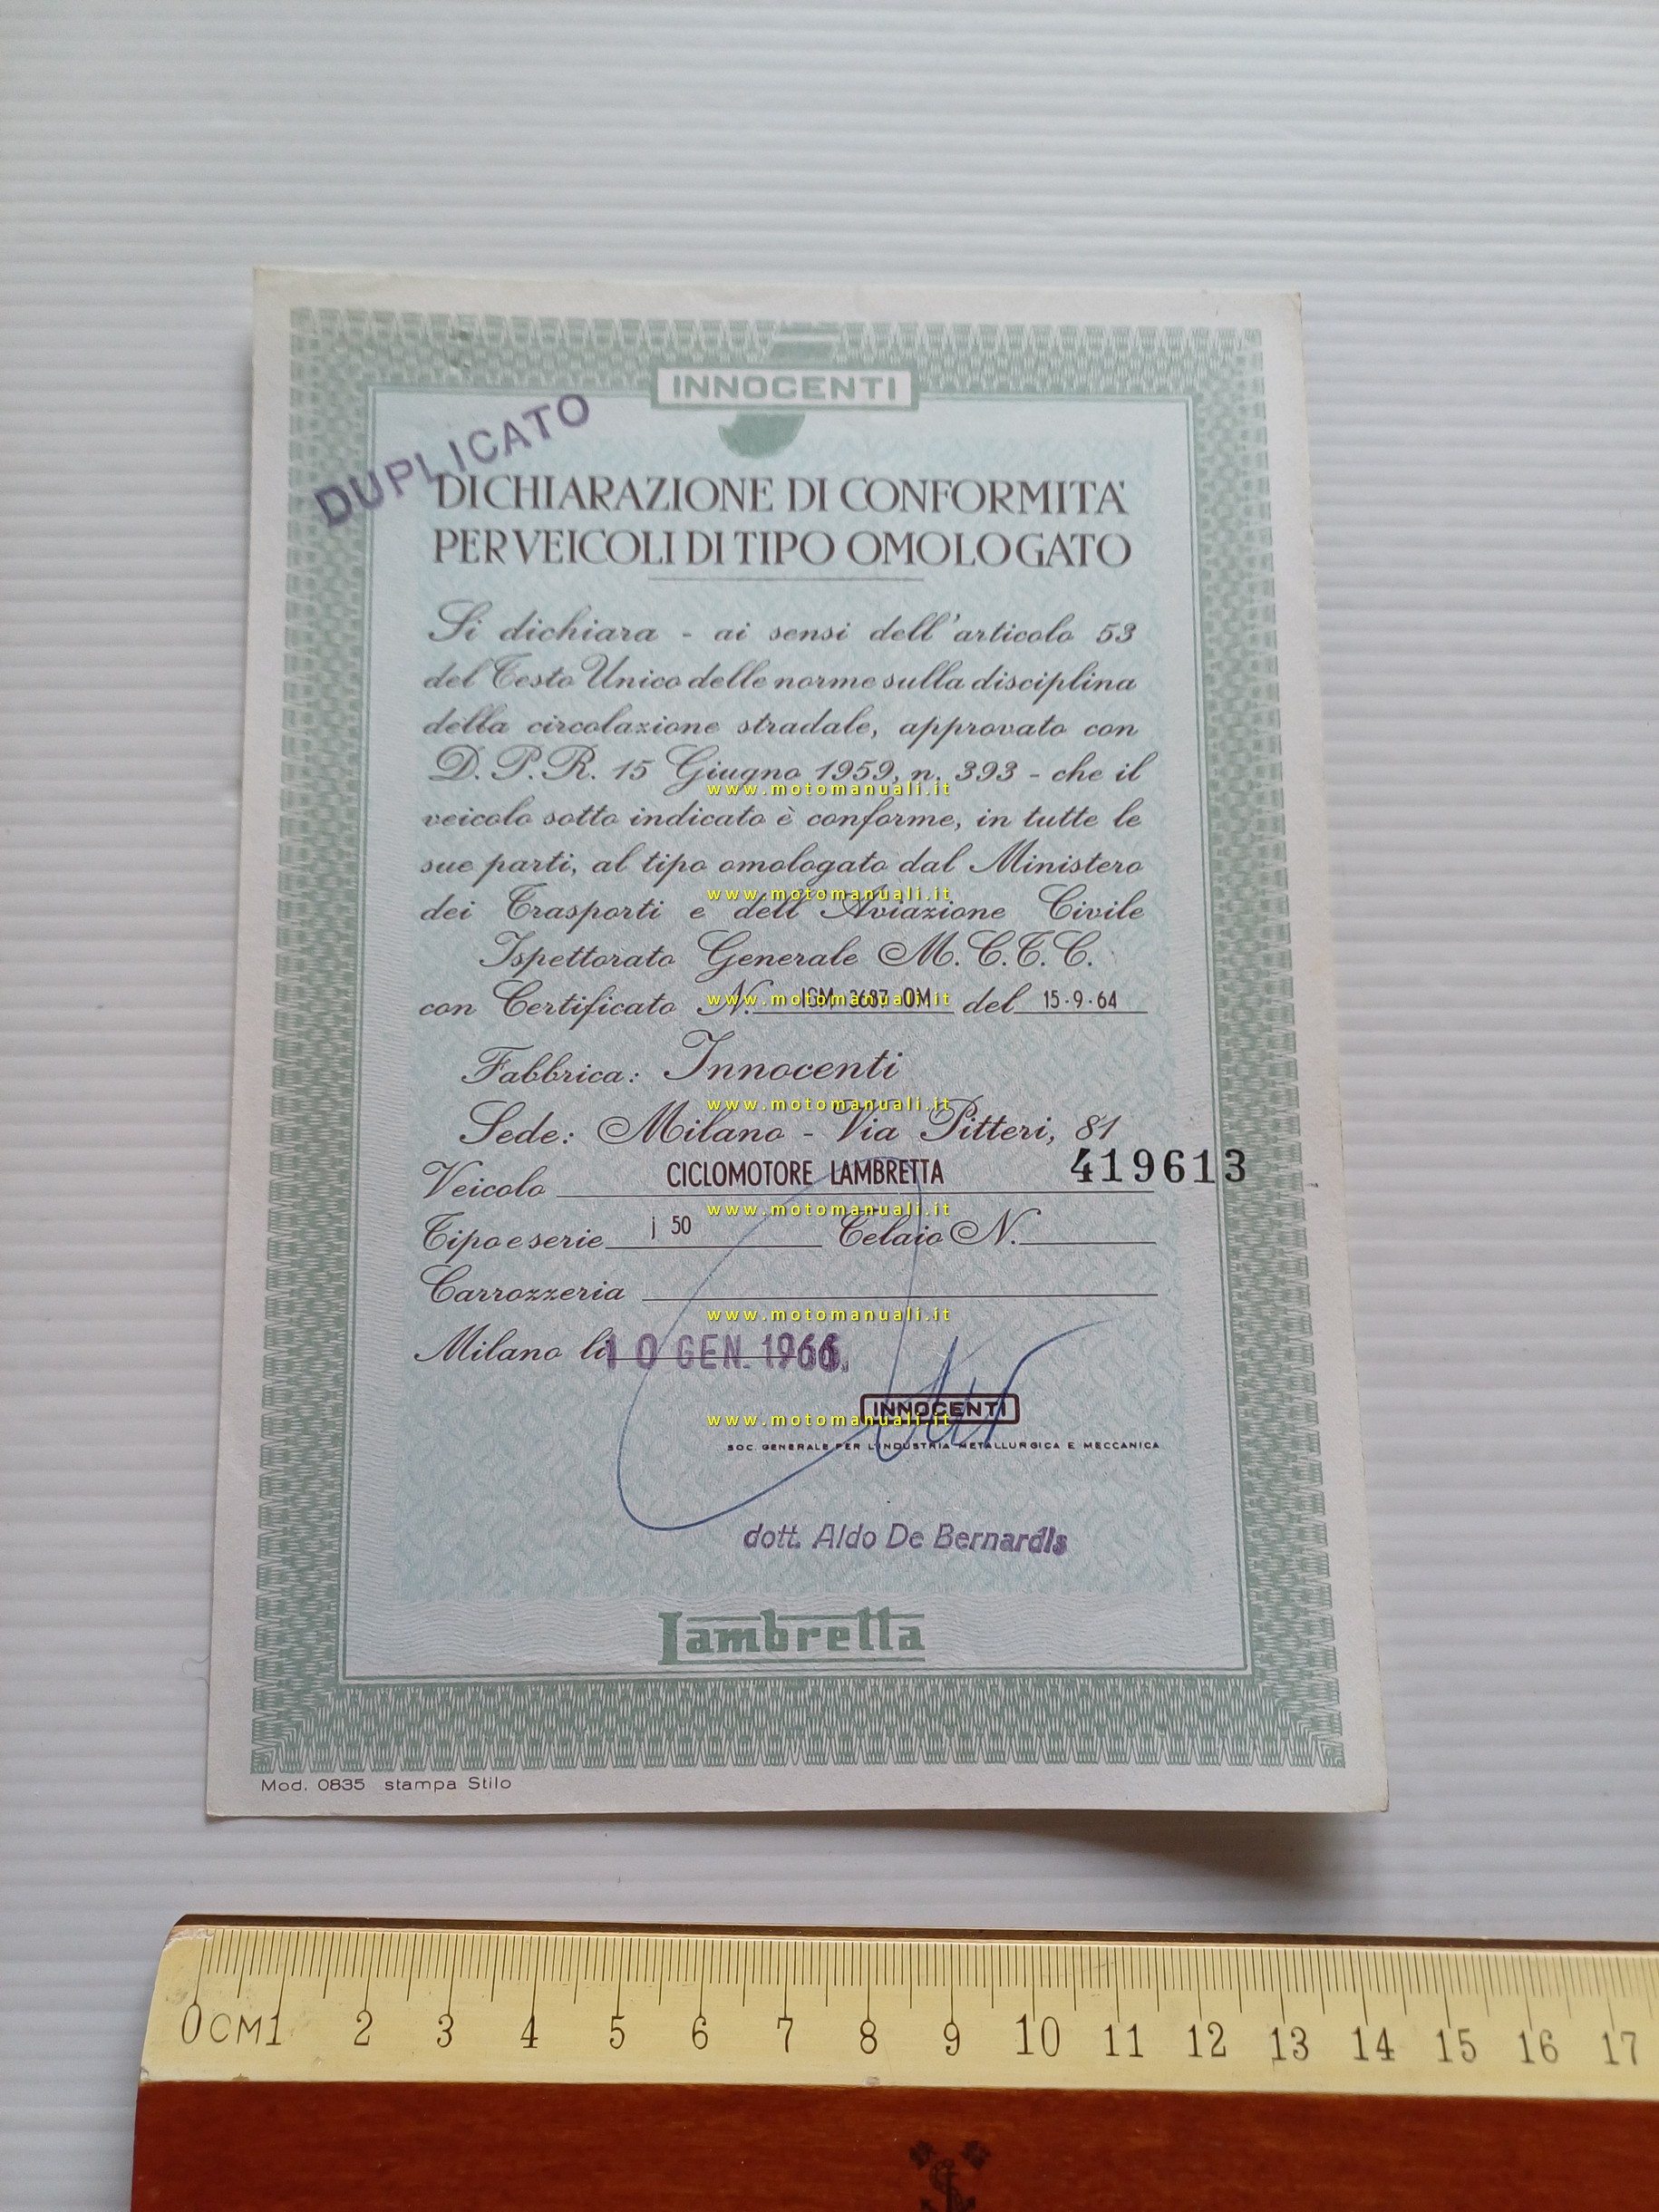 INNOCENTI
DUPLICATO
DICHIARAZIONE DI CONFORMITA'
PER VEICOLI DI TIPO OMOLOGATO
Si dichiara - ai sensi dell'articolo 53
del Testo Unico delle norme sulla disciplina
della circolazione stradale, approvato con
D. P. R. 15 Giugno 1959, n. 393 - che il
www.motomanuali.it
veicolo sotto indicato è conforme, in tutte le
sue parti, al tipo omologato dal Ministero
www.motomanuali.it
dei Trasporti e dell'Aviazione Civile
Ispettorato Generale M. C. T. C.
con Certificato N. OM del 15-9-64
www.motomanuali.it
Fabbrica: Innocenti
www.motomanuali.it
Sede: Milano - Via Pitteri, 81
Veicolo CICLOMOTORE LAMBRETTA 419613
www.motomanuali.it
Tipo e serie j 50 Telaio N.
Carrozzeria
www.motomanuali.it
Milano li 10 GEN. 1966
INNOCENTI
www.motomanuali.it
SOC. GENERALE PER L'INDUSTRIA METALLURGICA E MECCANICA
dott. Aldo De Bernardis
Lambretta
Mod. 0835 stampa Stilo
0 CM 1 2 3 4 5 6 7 8 9 10 11 12 13 14 15 16 17